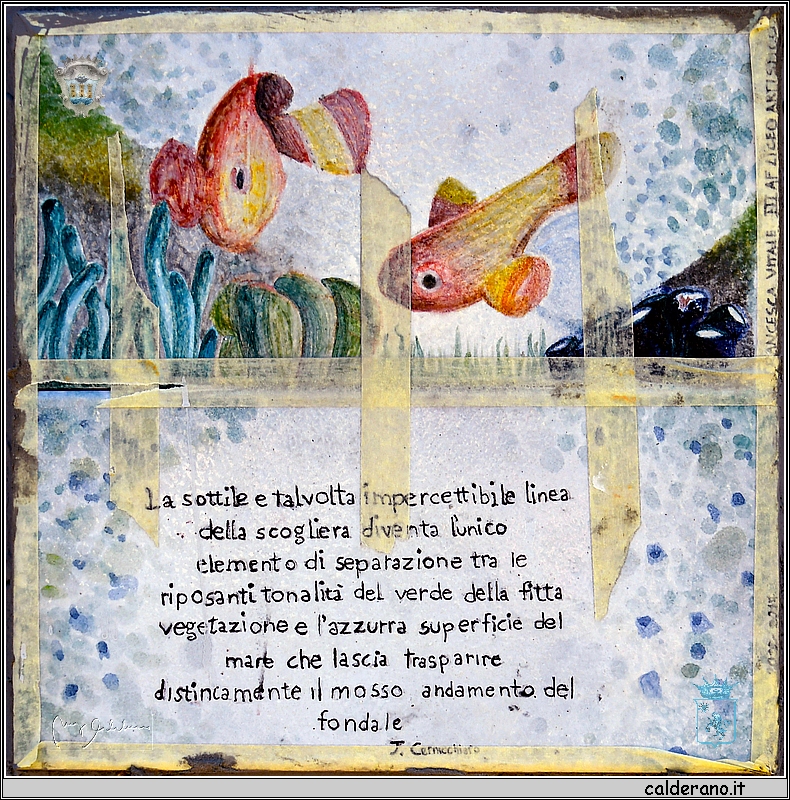 La sottile e talvolta impercettibile linea
della scogliera diventa l'unico
elemento di separazione tra le
riposanti tonalità del verde della fitta
vegetazione e l'azzurra superficie del
mare che lascia trasparire
distincamente il mosso andamento del
fondale
J. Cernicchiaro
VITALE III AF LICEO ARTISTICO
calderano.it